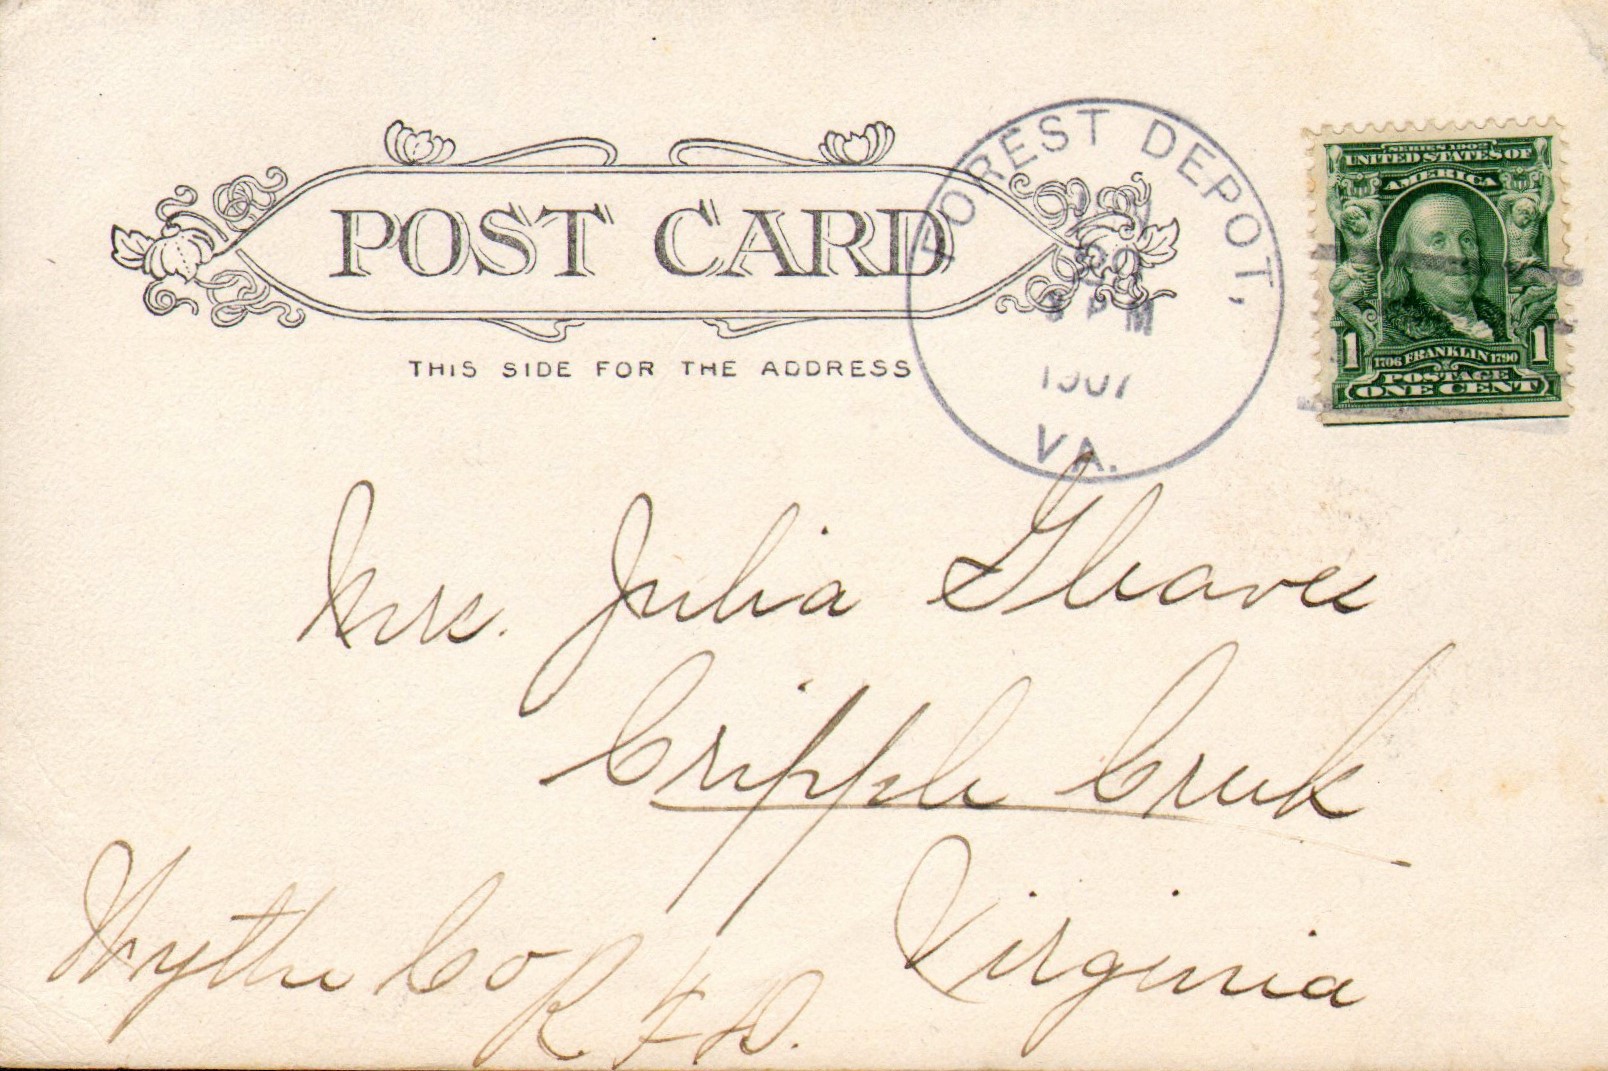 POST CARD
THIS SIDE FOR THE ADDRESS
FOREST DEPOT,
PM
1907
VA.
SERIES 1902
UNITED STATES OF
AMERICA
1 1706 FRANKLIN 1790 1
POSTAGE
ONE CENT
Mrs. Julia Gleaves
Cripple Creek
Virginia
Wythe Co R. F. D.